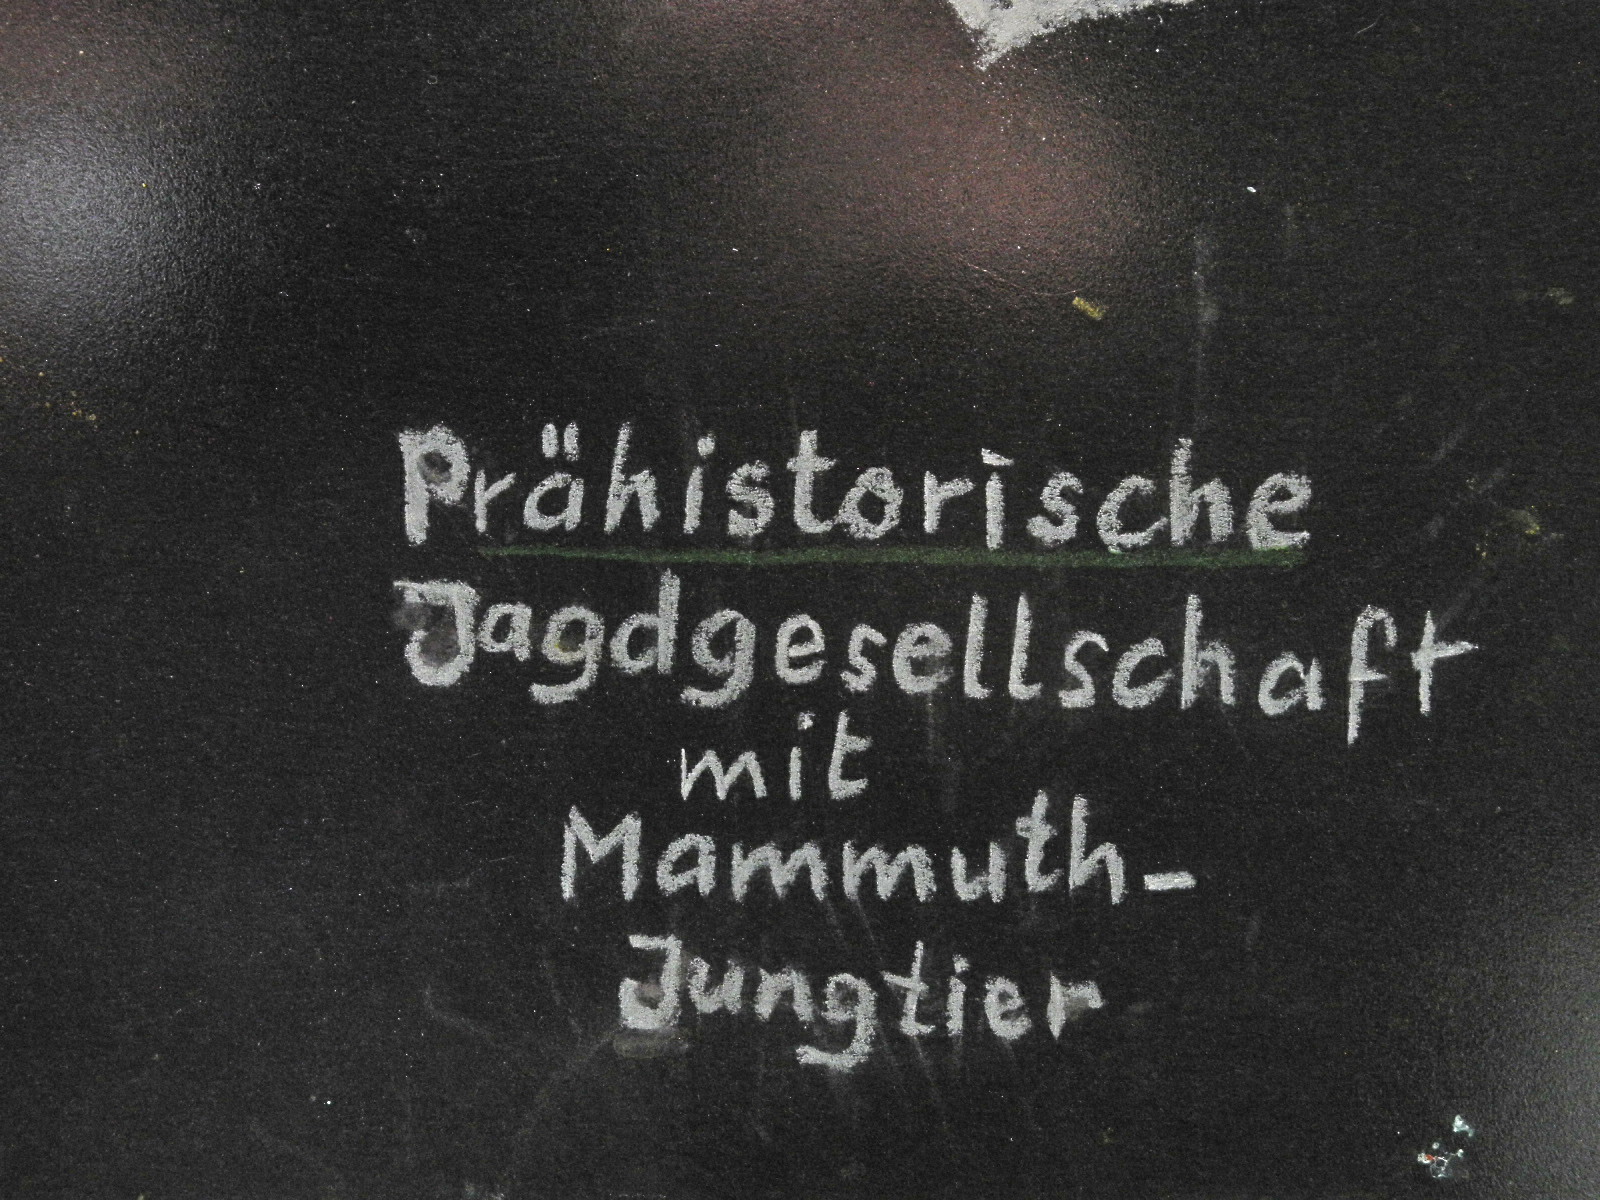 Prähistorische
Jagdgesellschaft
mit
Mammuth-
Jungtier